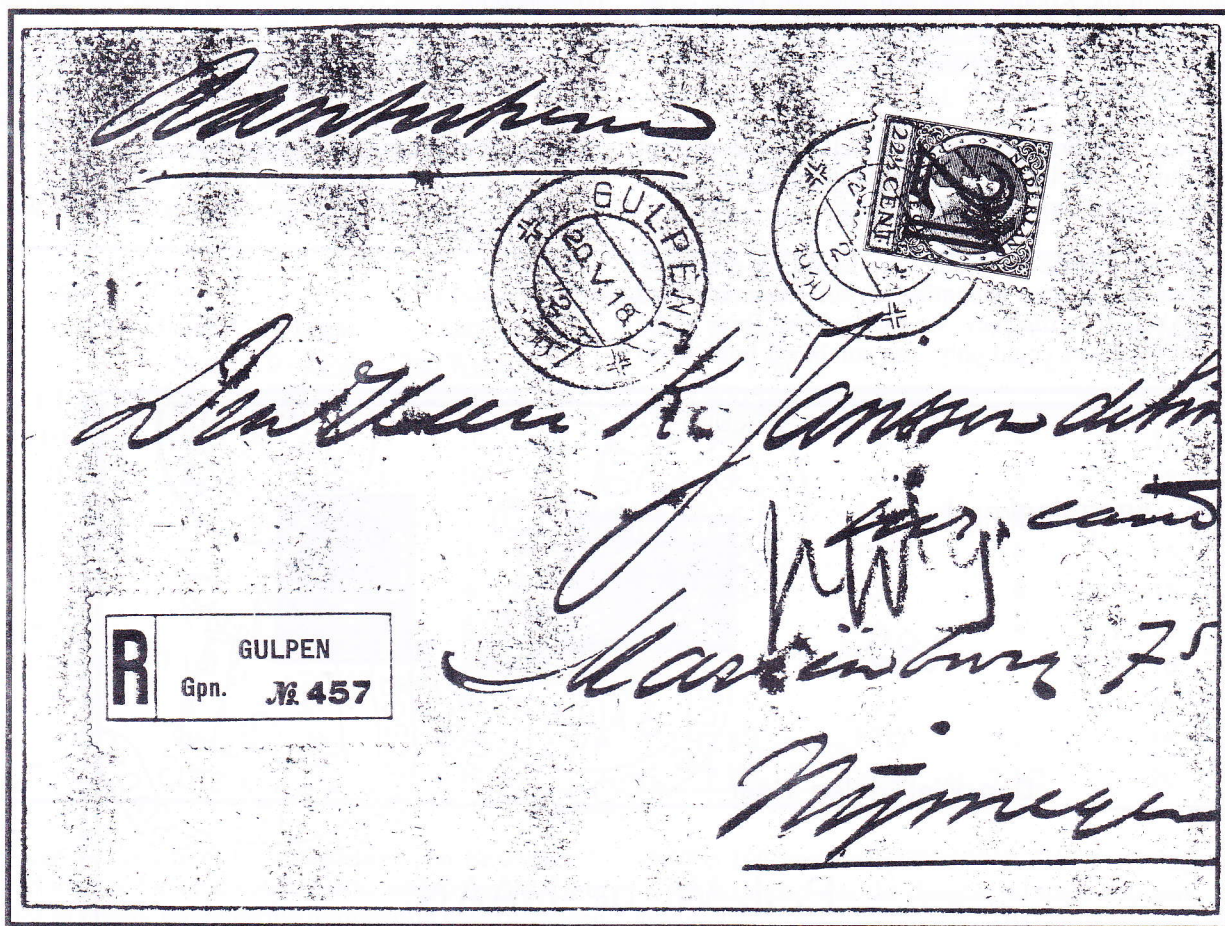 Aantekenen
GULPEN
20 V 18
22½ CENT
NEDERLAND
Den Heer K. Janssen de
jur. cand
Mariënburg 75
Nijmegen
R
GULPEN
Gpn. № 457